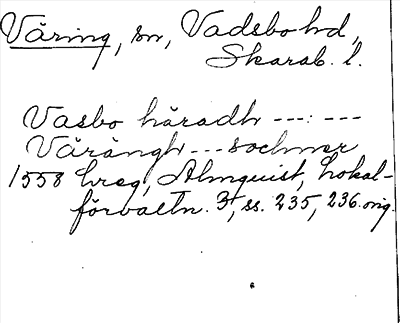 Väring, sn, Vadsbo hd,
Skarab. l.
Vasbo häradh ---: ---
Värängh --- sochner
1558 hreg, Almquist, Lokal-
förvaltn. 3, ss. 235, 236. orig.